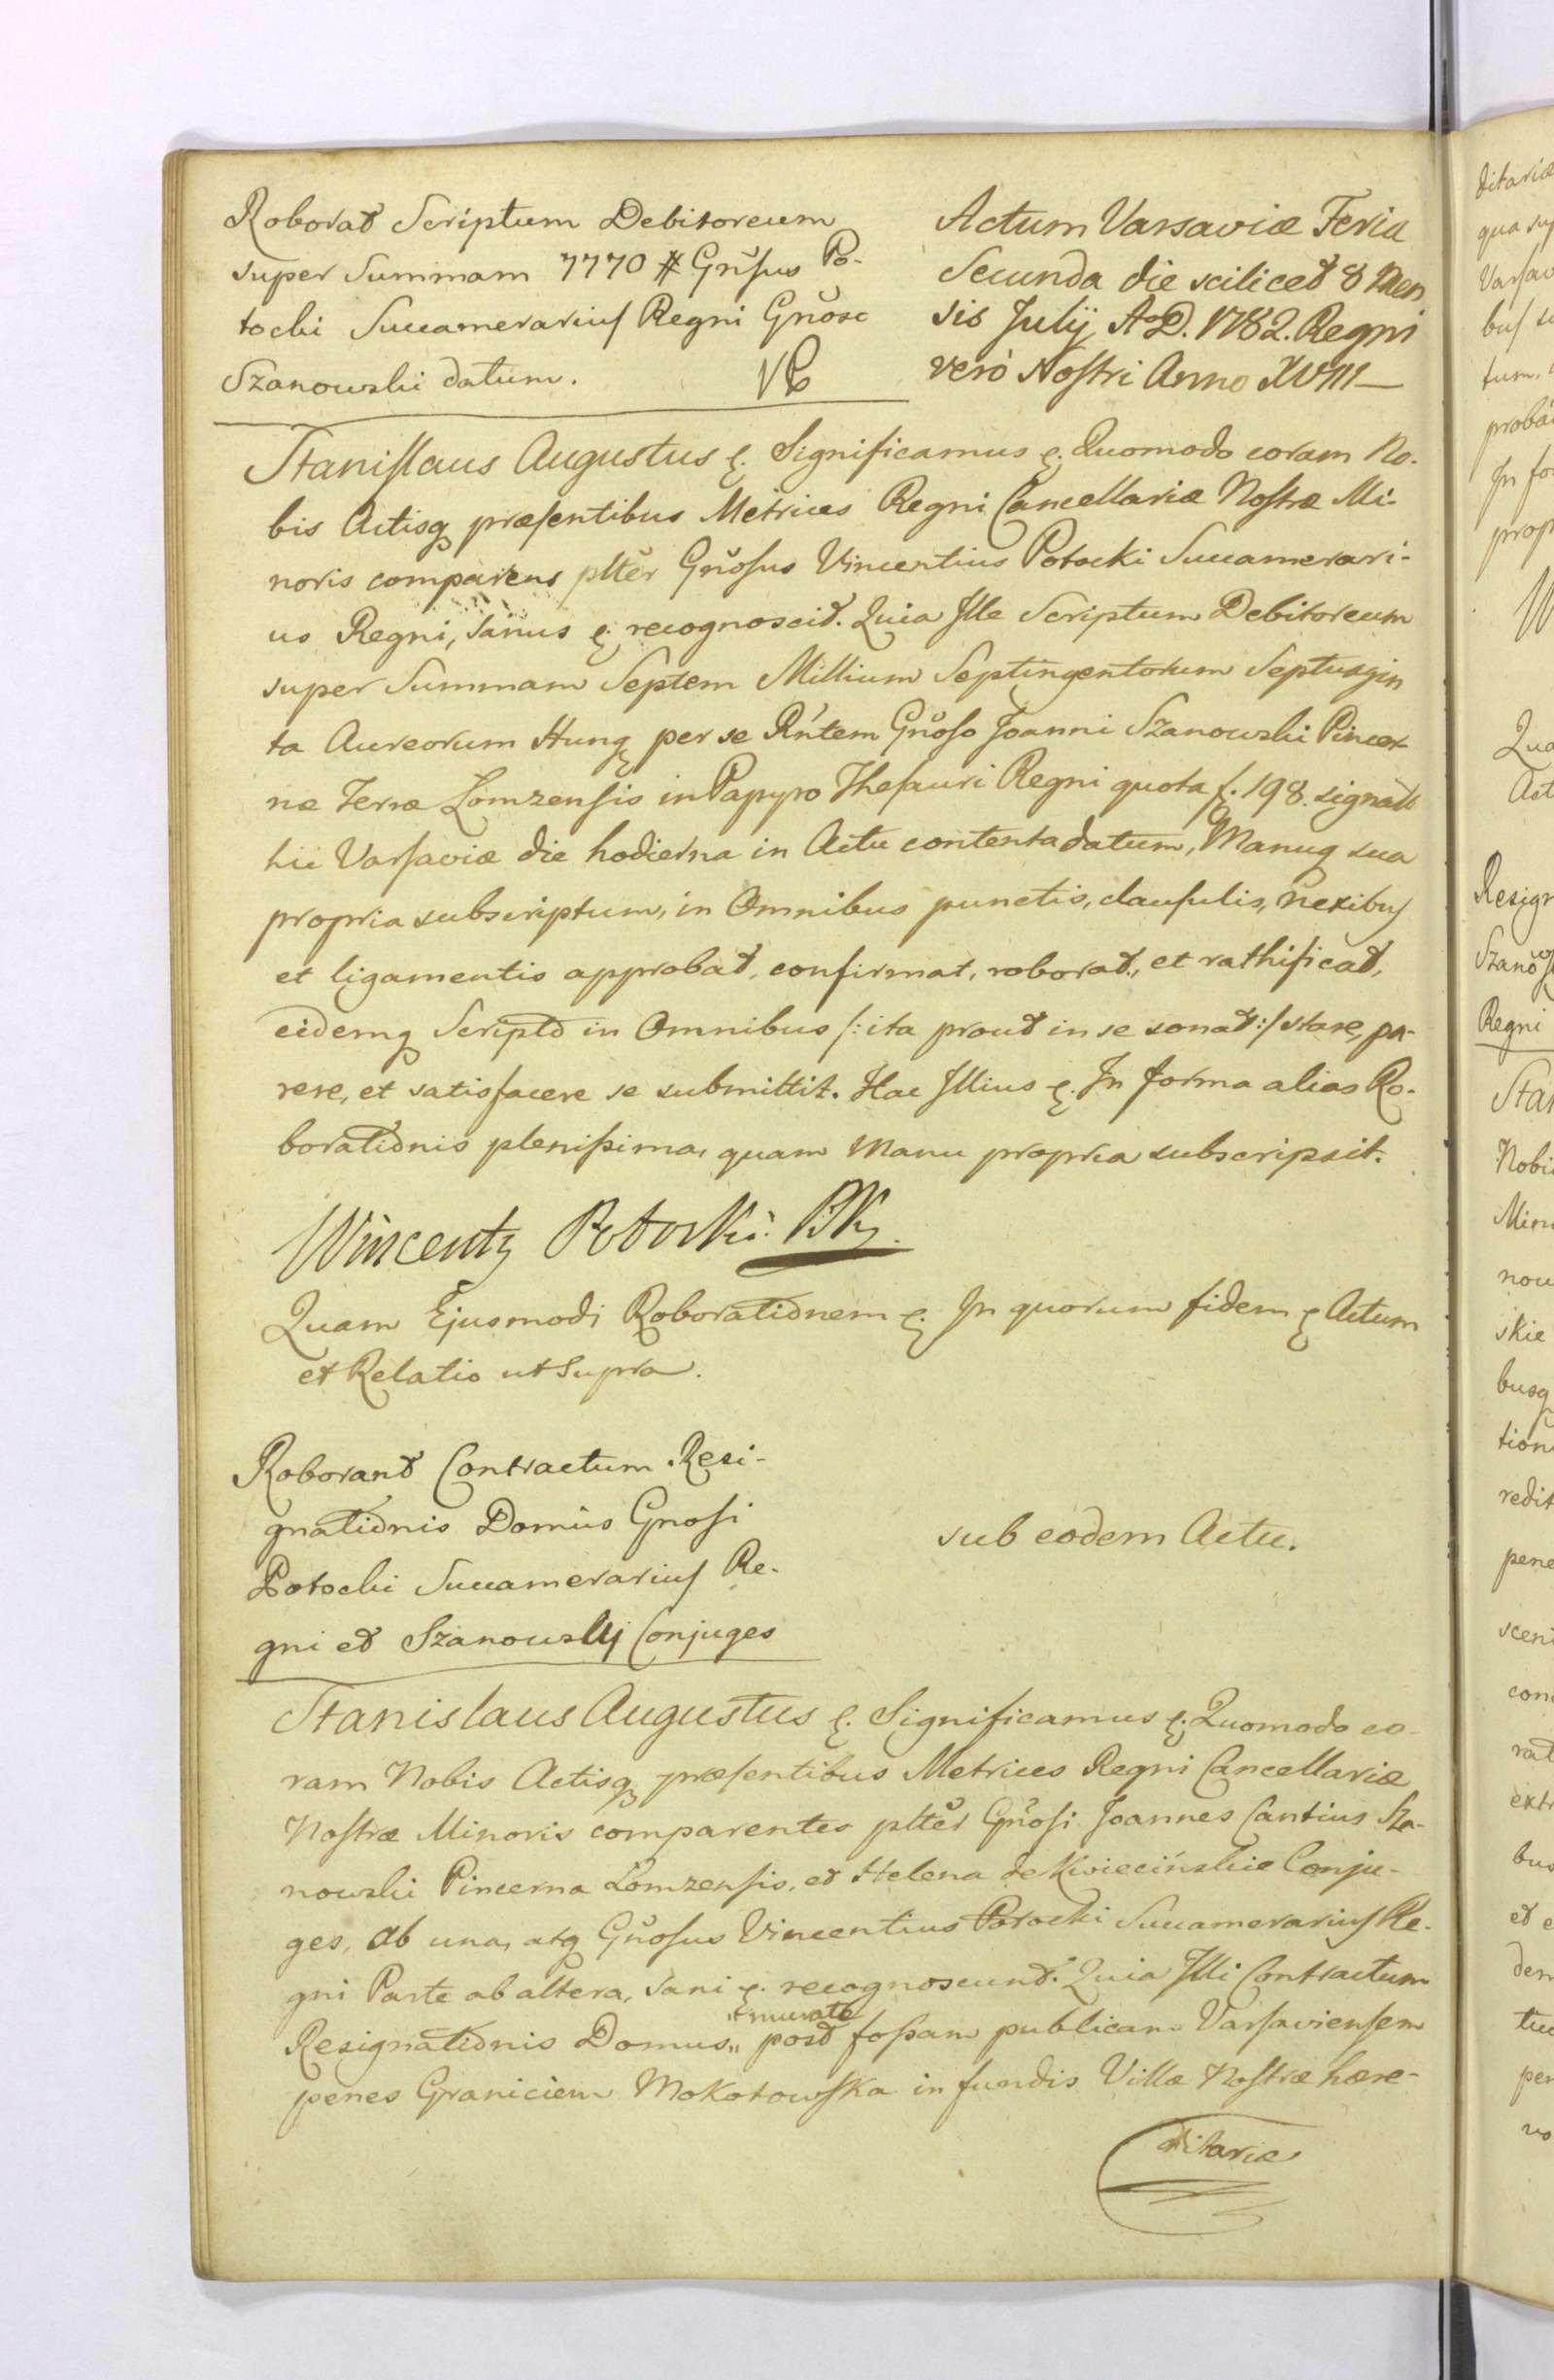 Roborat Scriptum Debitoreum
super Summam 7770 # Gnősus Po-
tocki Succamerarius Regni Gnőso
Szanowski datum. VP
Actum Varsaviæ Feria
Secunda die scilicet 8 Men
sis Julij AoD. 1782. Regni
veró Nostri Anno XVIII
Stanislaus Augustus &. Significamus &. Quomodo coram No-
bis Actisq præsentibus Metrices Regni Cancellariæ Nostræ Mi-
noris comparens pltěr Gnősus Vincentius Potocki Succamerari-
us Regni, sanus &. recognoscit. Quia Ille Scriptum Debitoreum
super Summam Septem Millium Septingentorum Septuagin
ta Aureorum Hung per se Rńtem Gnőso Joanni Szanowski Pincer-
næ Terræ Łomzensis in Papyro Thesauri Regni quota f. 198. signato
hic Varsaviæ die hodierna in Actu contenta datum, Manuq sua
propria subscriptum, in Omnibus punctis, clausulis, nexibus
et ligamentis approbat, confirmat, roborat, et rathificat,
eidemq Scripto in Omnibus /: ita prout in se sonat :/ stare, pa-
rere, et satisfacere se submittit. Hac Illius &. In forma alias Ro-
borationis plenissima, quam Manu propria subscripsit.
Wincenty Potocki PK.
Quam Ejusmodi Roborationem &. In quorum fidem & Actum
et Relatio ut Supra.
Roborant Contractum Resi-
gnationis Domûs Gnosi
Potocki Succamerarius Re-
gni et Szanowskij Conjuges
sub eodem Actu.
Stanislaus Augustus &. Significamus &. Quomodo co-
ram Nobis Actisq præsentibus Metrices Regni Cancellariæ
Nostræ Minoris comparentes pltěr Gnősi Joannes Cantius Sza-
nowski Pincerna Łomzensis, et Helena de Kwiecińskie Conju-
ges, ab una, atq Gnősus Vincentius Potocki Succamerarius Re-
gni Parte ab altera, sani &. recognoscunt. Quia Illi Contractum
Resignationis Domus " murate post fossam publicam Varsaviensem
penes Graniciem Mokotowska in fundis Villæ Nostræ hære-
ditariæ